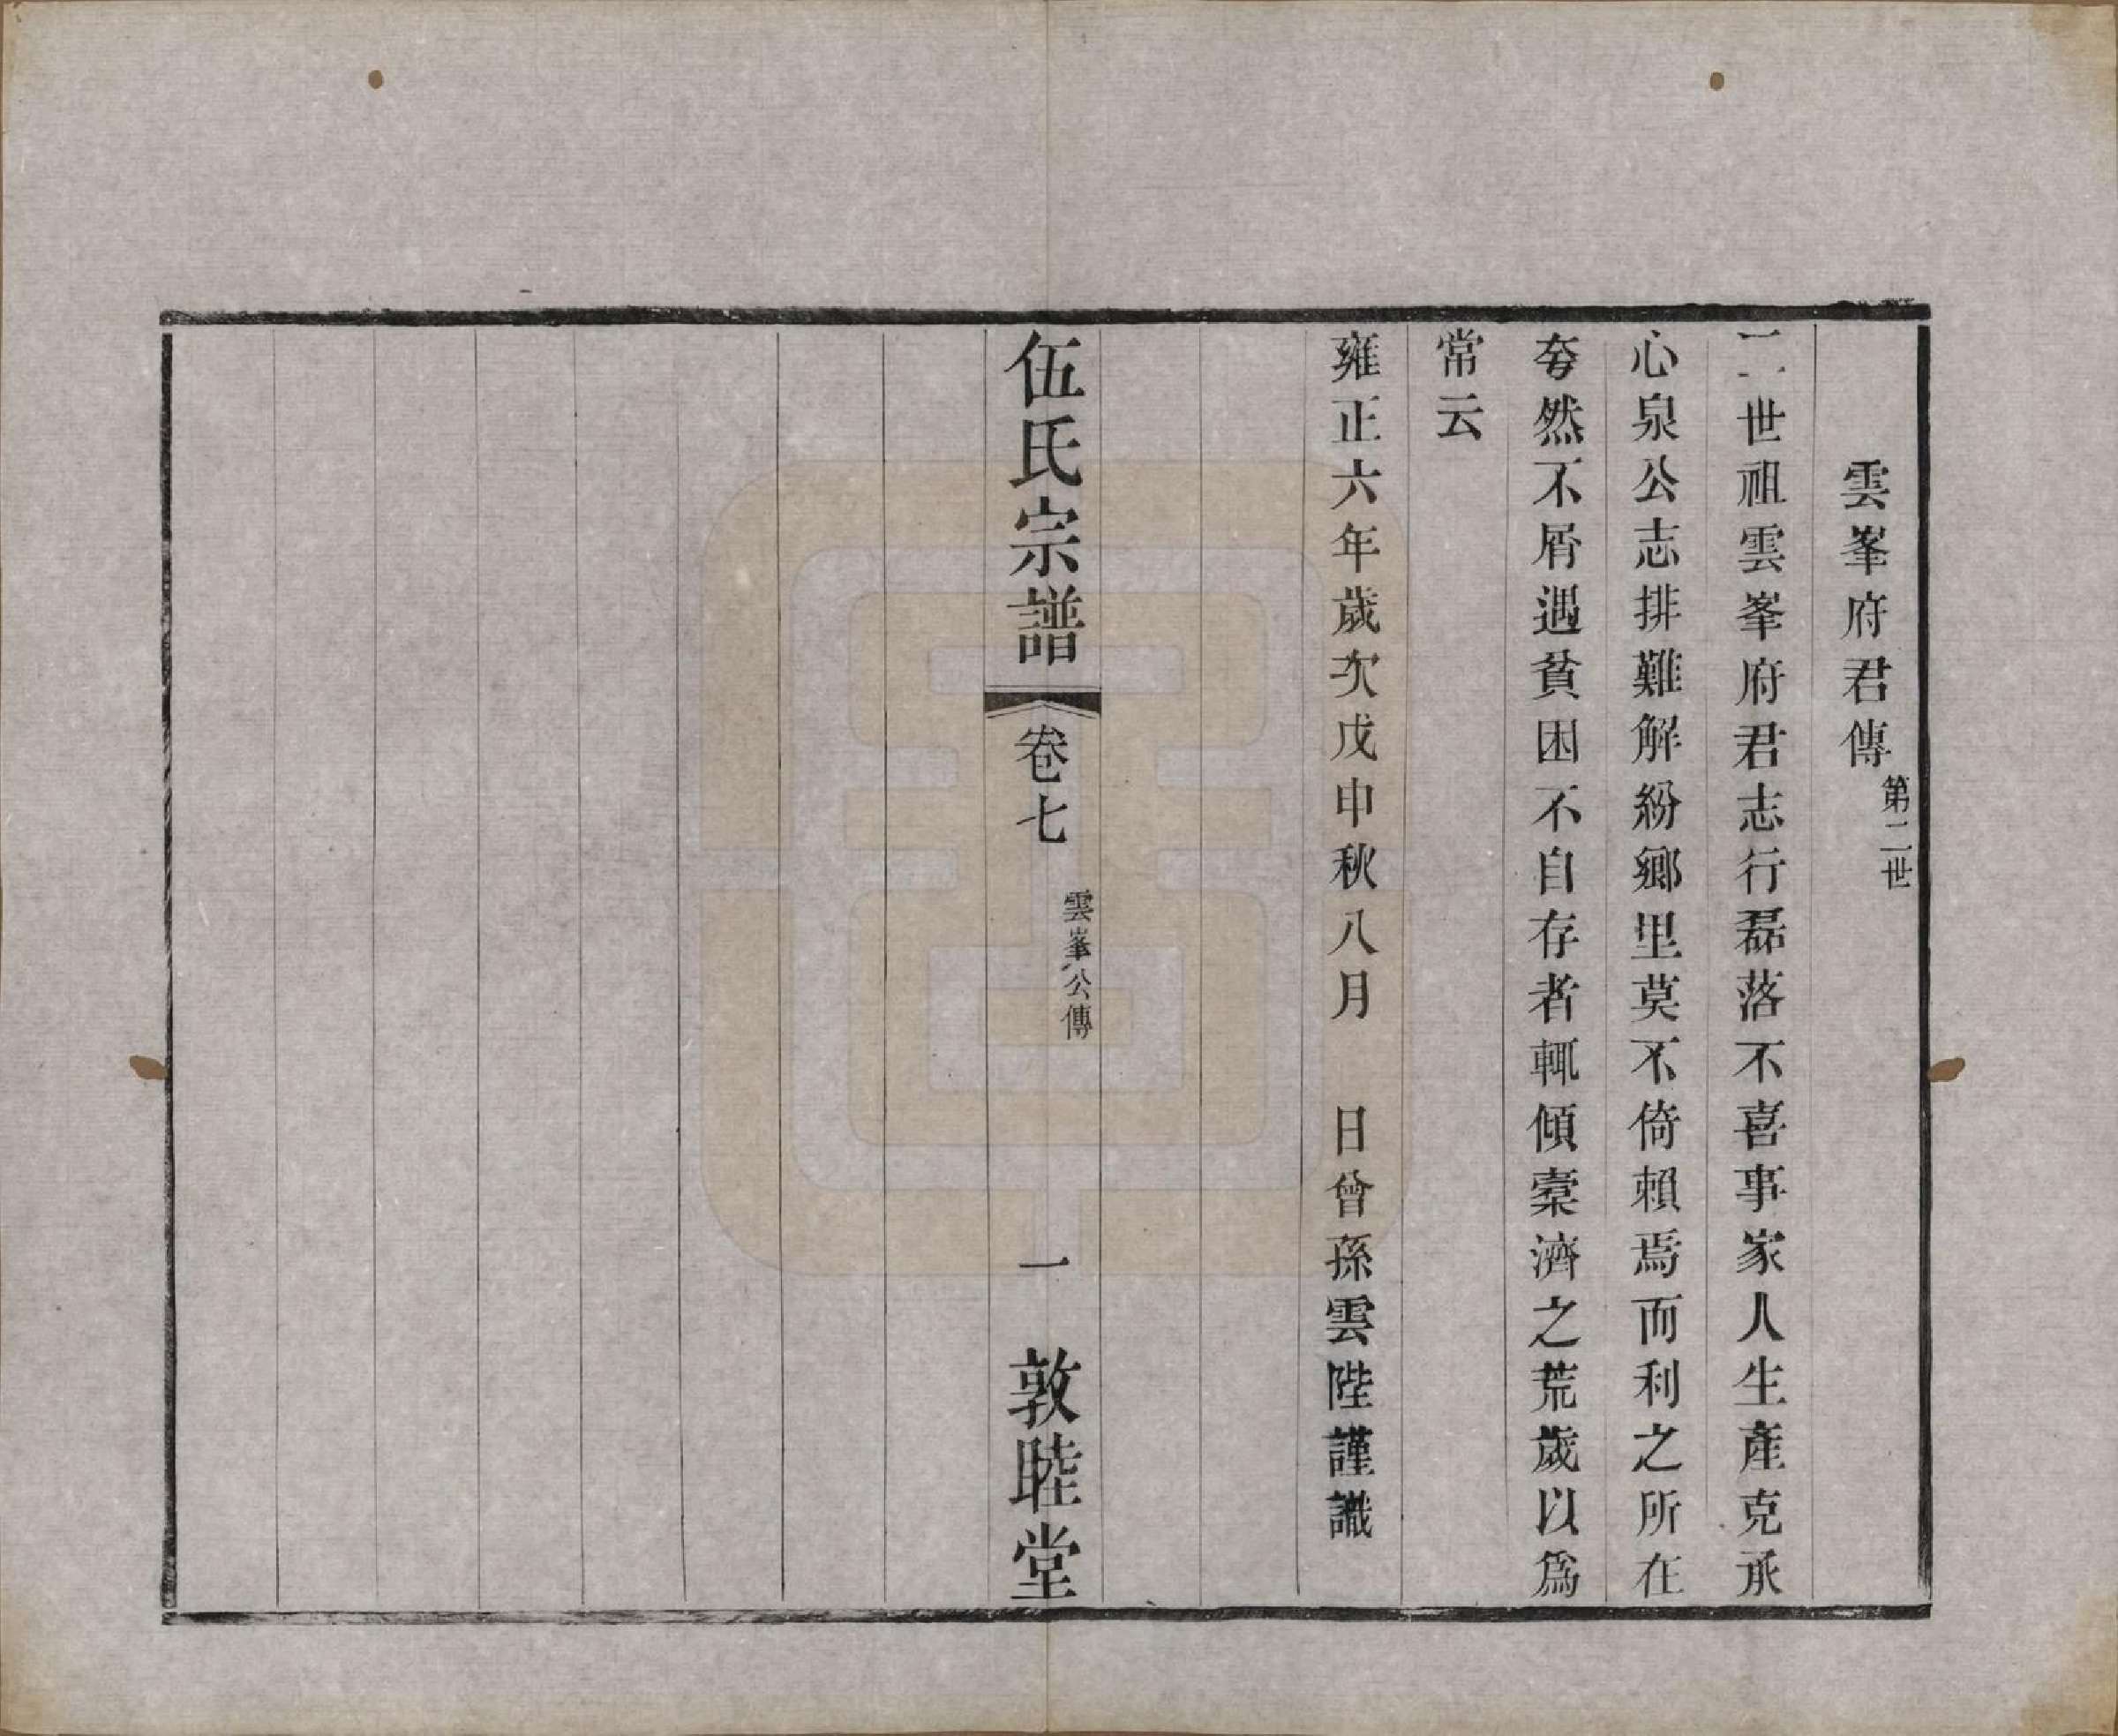 雲峯府君傳 第二世
二世祖雲峯府君志行磊落不喜事家人生產克承
心泉公志排難解紛鄉里莫不倚賴焉而利之所在
夸然不屑遇貧困不自存者輒傾橐濟之荒歲以爲
常云
雍正六年歲次戊申秋八月　日曾孫雲陛謹識
伍氏宗譜 卷七 雲峯公傳 一 敦睦堂